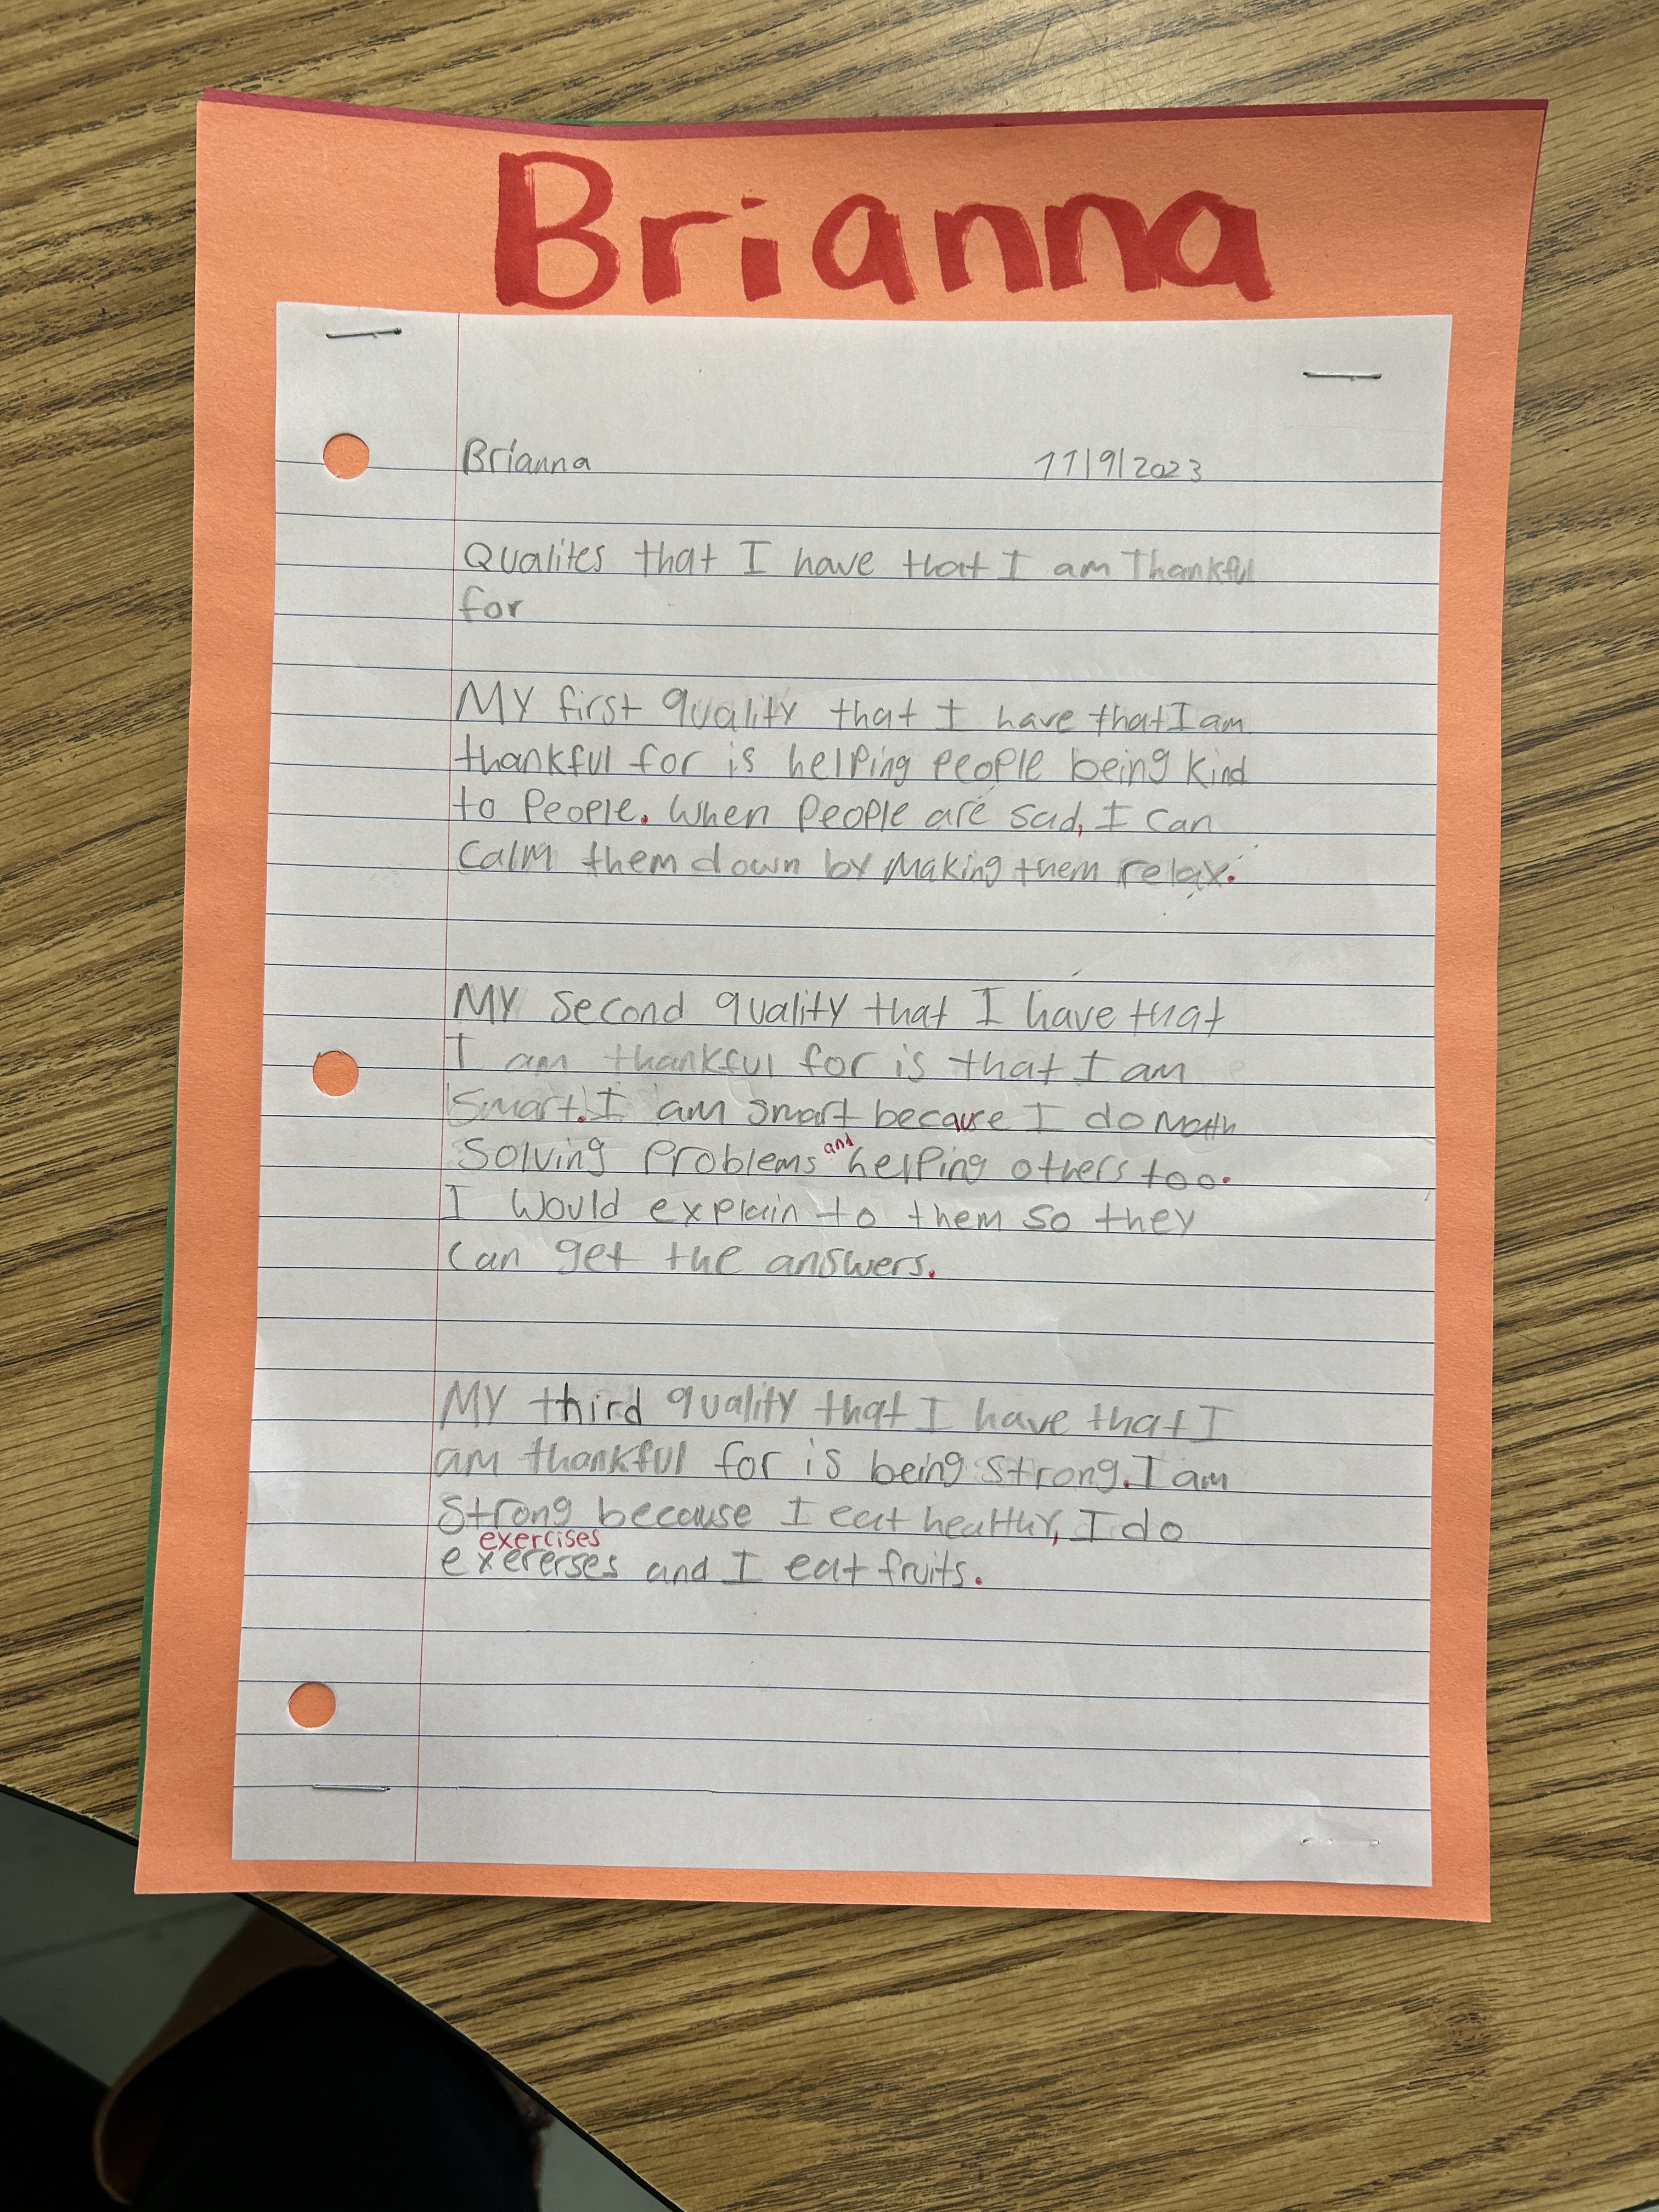 Brianna
Brianna 11/9/2023
Qualites that I have that I am Thankful
for
My first quality that I have that I am
thankful for is helping people being kind
to people. When people are sad, I can
calm them down by making them relax.
My second quality that I have that
I am thankful for is that I am
smart. I am smart because I do math
solving problems and helping others too.
I would explain to them so they
can get the answers.
My third quality that I have that I
am thankful for is being strong. I am
strong because I eat healthy, I do
exercises
exererses and I eat fruits.